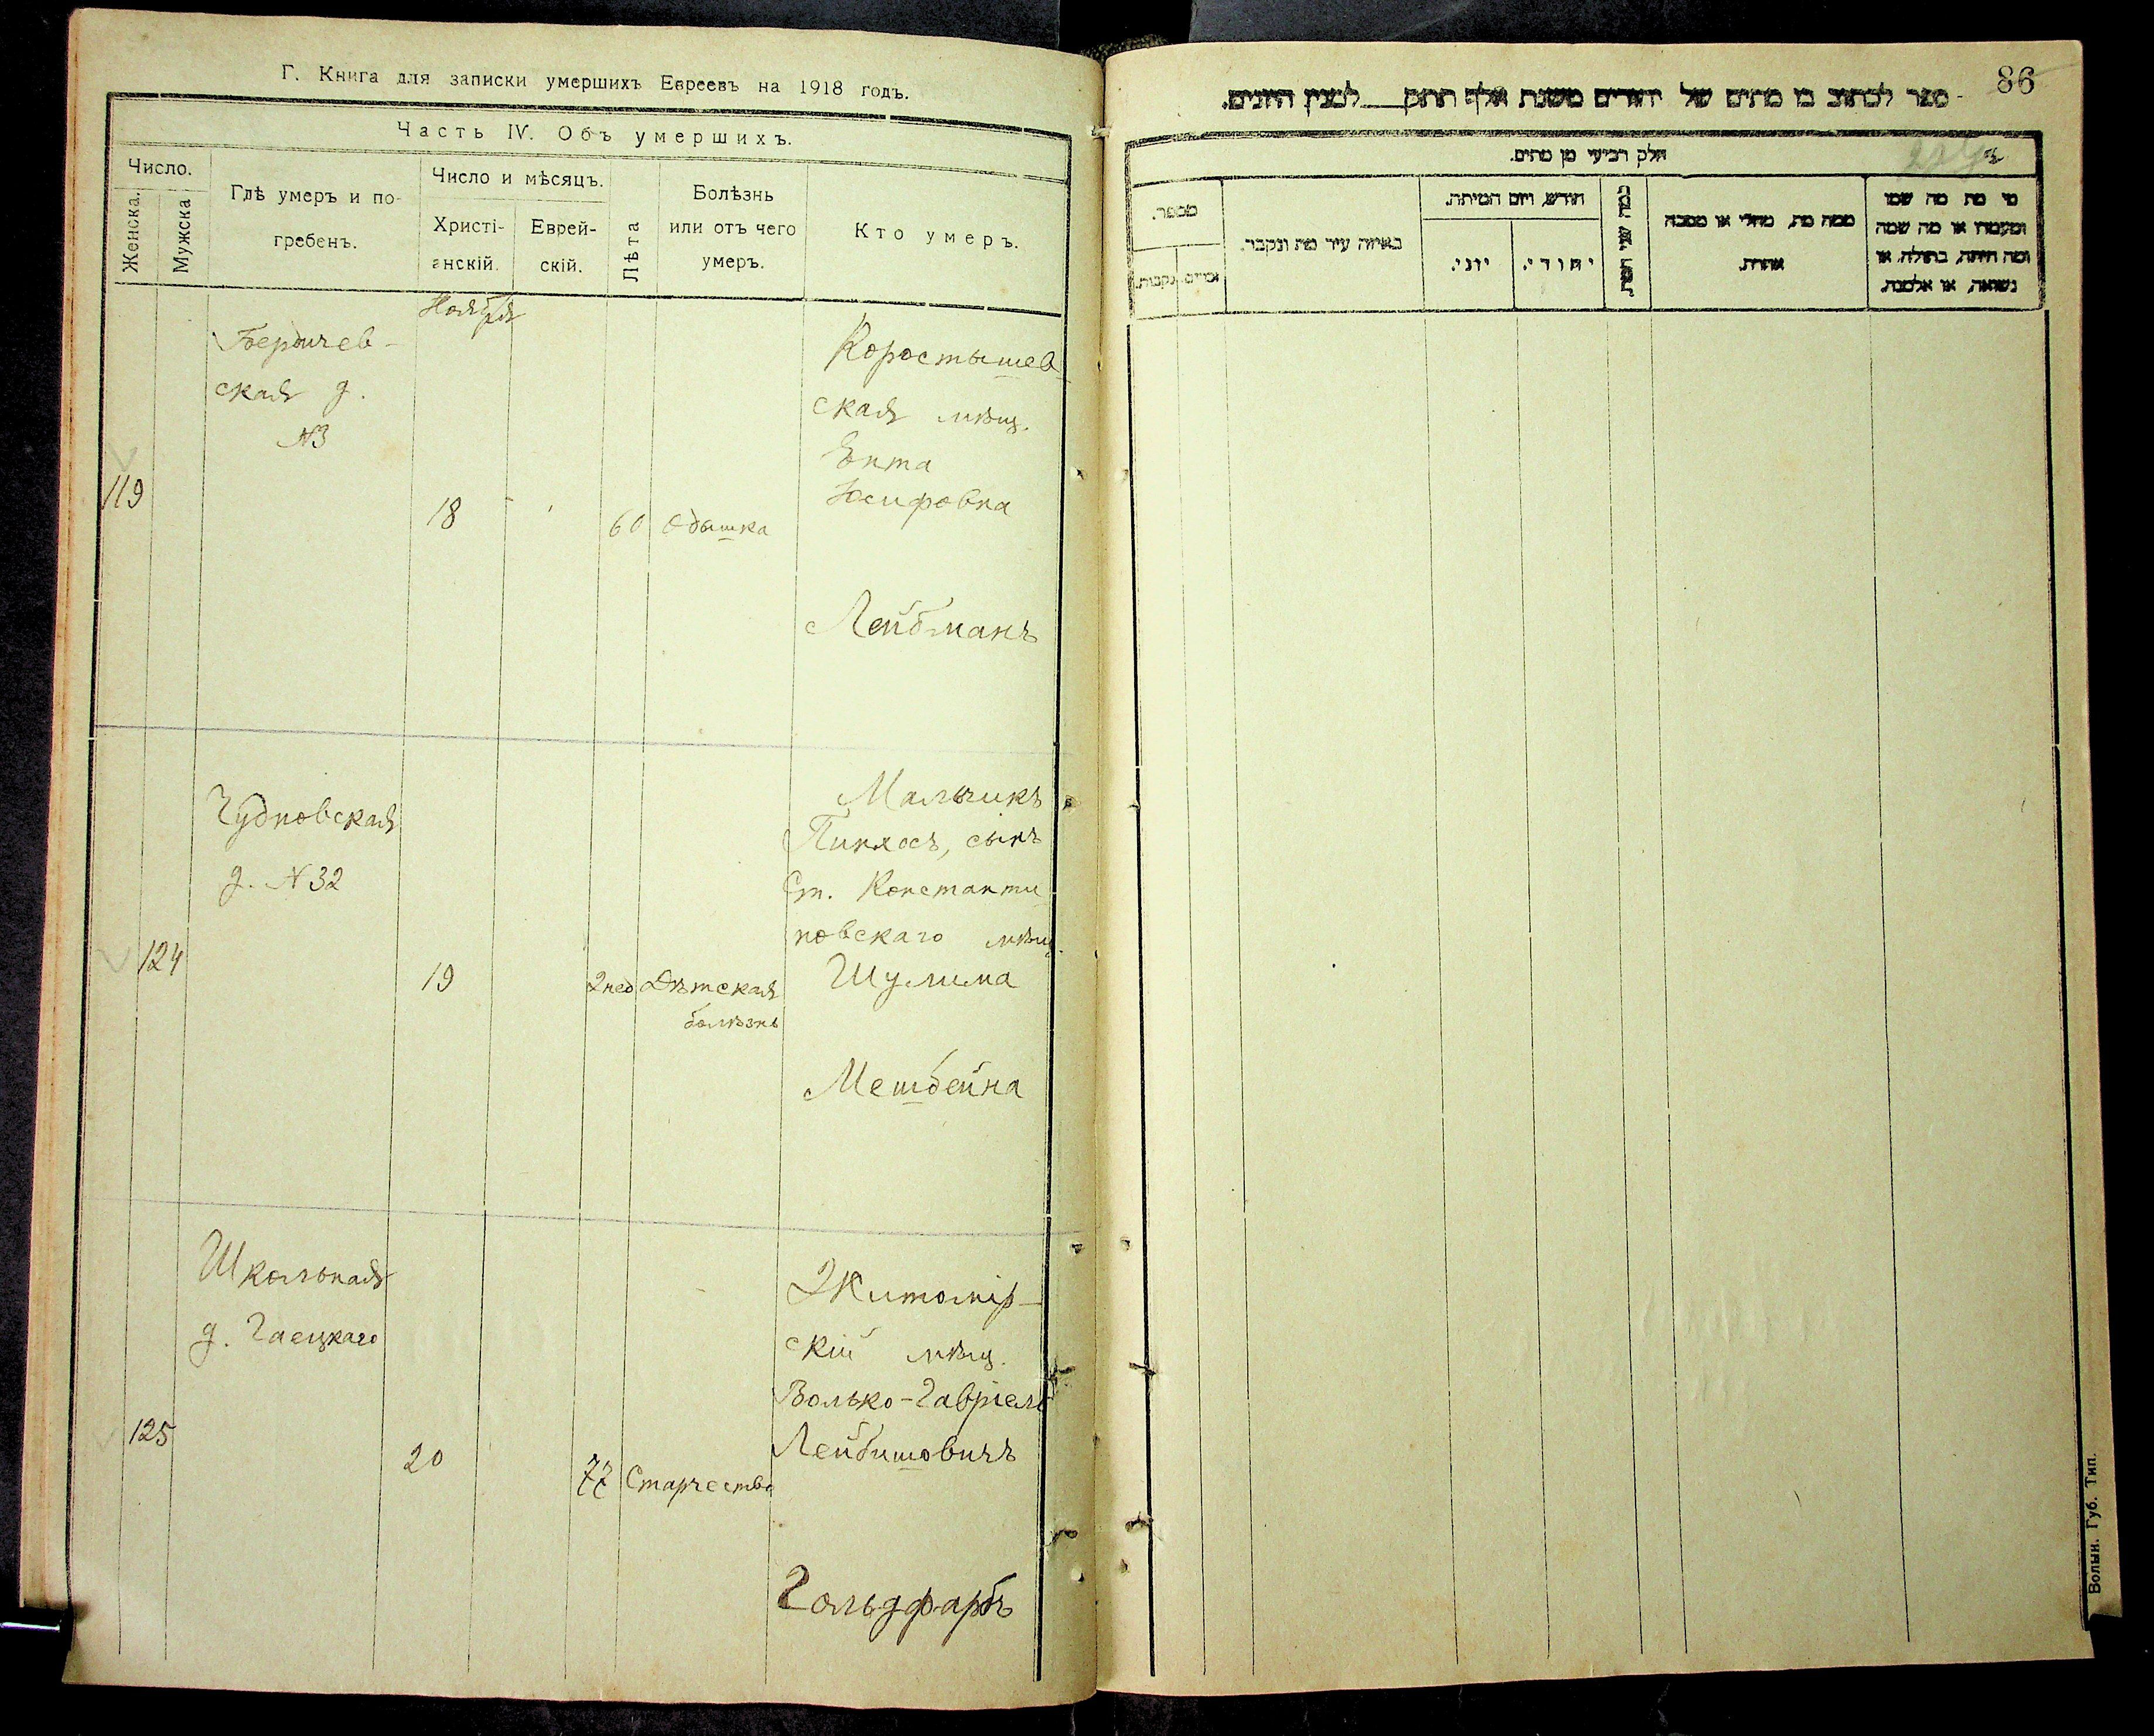 Г. Книга для записки умершихъ Евреевъ на 1918 годъ.
Часть IV. Объ умершихъ.
Число.
Женска.
Мужска
Гдѣ умеръ и по-
гребенъ.
Число и мѣсяцъ.
Христі-
анскій.
Еврей-
скій.
Лѣта
Болѣзнь
или отъ чего
умеръ.
Кто умеръ.
Ноября
119
Бердичев-
ская д.
№3
18
60
Одышка
Коростышев-
ская мѣщ.
Ента
Юсифовна
Лейбманъ
124
Чудновская
д. №32
19
2 нед
Дѣтская
болѣзнь
Мальчикъ
Пинхосъ, сынъ
Ст. Константи-
новскаго мѣщ.
Шулима
Мешбейна
125
Школьная
д. Гаецкаго
20
77
Старчество
Житомір-
скій мѣщ.
Волько-Гавріель
Лейбишовичъ
Гольдфарбъ
86
ספר לכתוב בו מתים של יהודים משנת אלף תתק למנין היונים.
חלק רביעי מן מתים.
מספר.
זכרים
נקבות.
באיזה עיר מת ונקבר.
חודש, ויום המיתה.
יוני.
יהודי.
כמה שני המת.
ממה מת, מחלי או מסבה
אחרת.
מי מת מה שמו
ומעמדו או מה שמה
ומה היתה, בתולה, או
נשואה, או אלמנה.
Волын. Губ. Тип.